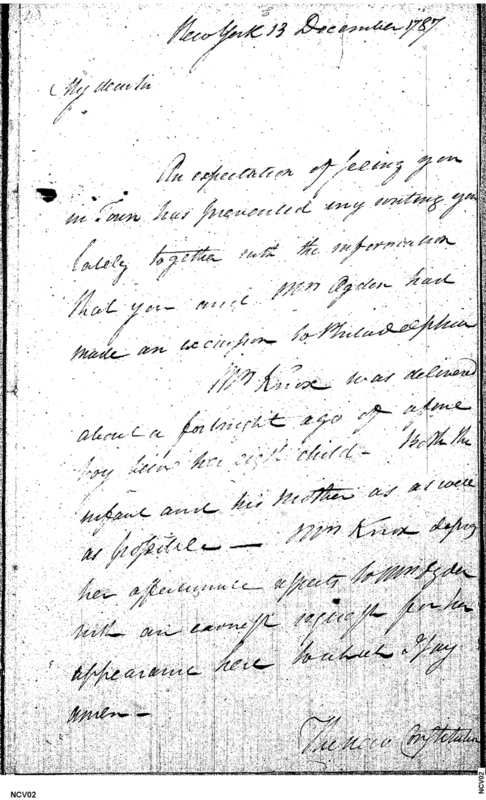 New York 13 December 1787
My dear sir
An expectation of seeing you
in Town has prevented my writing you
lately together with the information
that you and Mrs Ogden had
made an excursion to Philadelphia
Mrs Knox was delivered
about a fortnight ago of a fine
boy being her eighth child - Both the
infant and his mother as as well
as possible — Mrs Knox desires
her affectionate respects to Mrs Ogden
with an earnest request for her
appearance here to which I say
amen -
The new Constitution
NCV02
NCV02